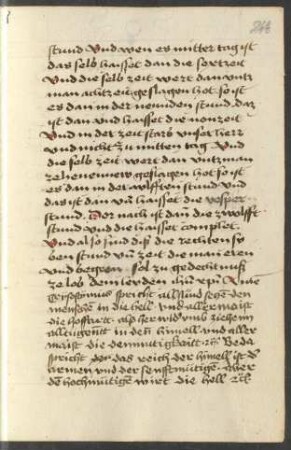 248
stund Vnd wen es mitter tag ist
das selb haisset dan die sextzeit
Vnd die selb zeit wert dan vntz
man acht zeit geslagen hot so ist
es dan in der newnden stund daz
ist dan vnd haisset die nonzeit
Vnd in der zeit starb vnser herr
vnd nicht zu mitten tag Vnd
die selb zeit wert dan vntz man
zehene geslagen hot so ist
es dan in der aylfften stund vnd
das ist dan vnd haisset die vesper
stund. Dor nach ist dan die zwolfft
stund vnd die haisset complet.
Vnd also sind diß die rechten sy
ben stund vnd zeit die man eren
vnd begeen sol zu gedechtnuß
zu lob dem leyden
Crisostimus spricht all sünd
menschen in die hell vnd aller maist
die hoffart. also her wid vmb ziehen
all tugent in den himell vnd aller
maist die demuttigkaitt Beda
spricht das reich der himell ist der
armen vnd der senfftmütigen aber
den hochmütigen wirt die hell